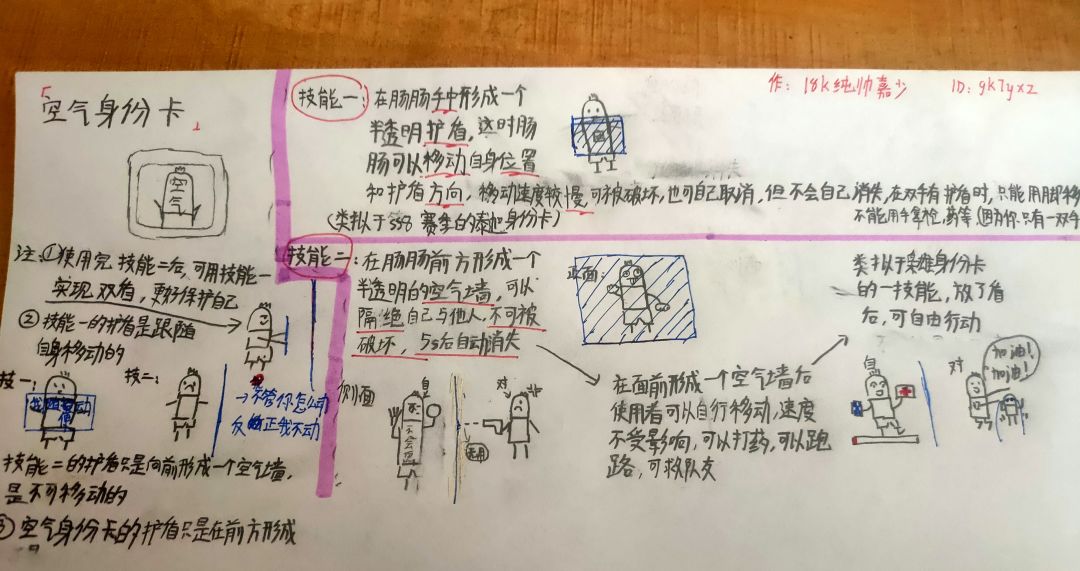 「空气身份卡」
空气
技能一：在肠肠手中形成一个
半透明护盾，这时肠
肠可以移动自身位置
和护盾方向，移动速度较慢，可被破坏，也可自己取消，但不会自己消失，在双手有护盾时，只能用脚移
不能用手拿枪，药等（因为你只有一双手
（类拟于SS8 赛季的泰迦身份卡）
作：18k纯帅嘉少 ID：gk7yxz
技能二：在肠肠前方形成一个
半透明的空气墙，可以
隔绝自己与他人，不可被
破坏，5s后自动消失
正面：
类拟于英雄身份卡
的一技能，放了盾
后，可自由行动
注：①使用完技能二后，可用技能一
实现双盾，更好保护自己
②技能一的护盾是跟随
自身移动的
技一：
技二：
→不管你怎么动
反正我不动
技能二的护盾只是向前形成一个空气墙，
是不可移动的
③空气身份卡的护盾只是在前方形成
侧面
自
对
无用
在面前形成一个空气墙后
使用者可以自行移动，速度
不受影响，可以打药，可以跑
路，可救队友
自
对
加油！
加油！